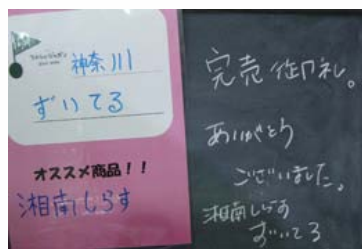 神奈川
ずいてる
オススメ商品！！
湘南しらす
完売御礼。
ありがとう
ございました。
湘南しらす
ずいてる